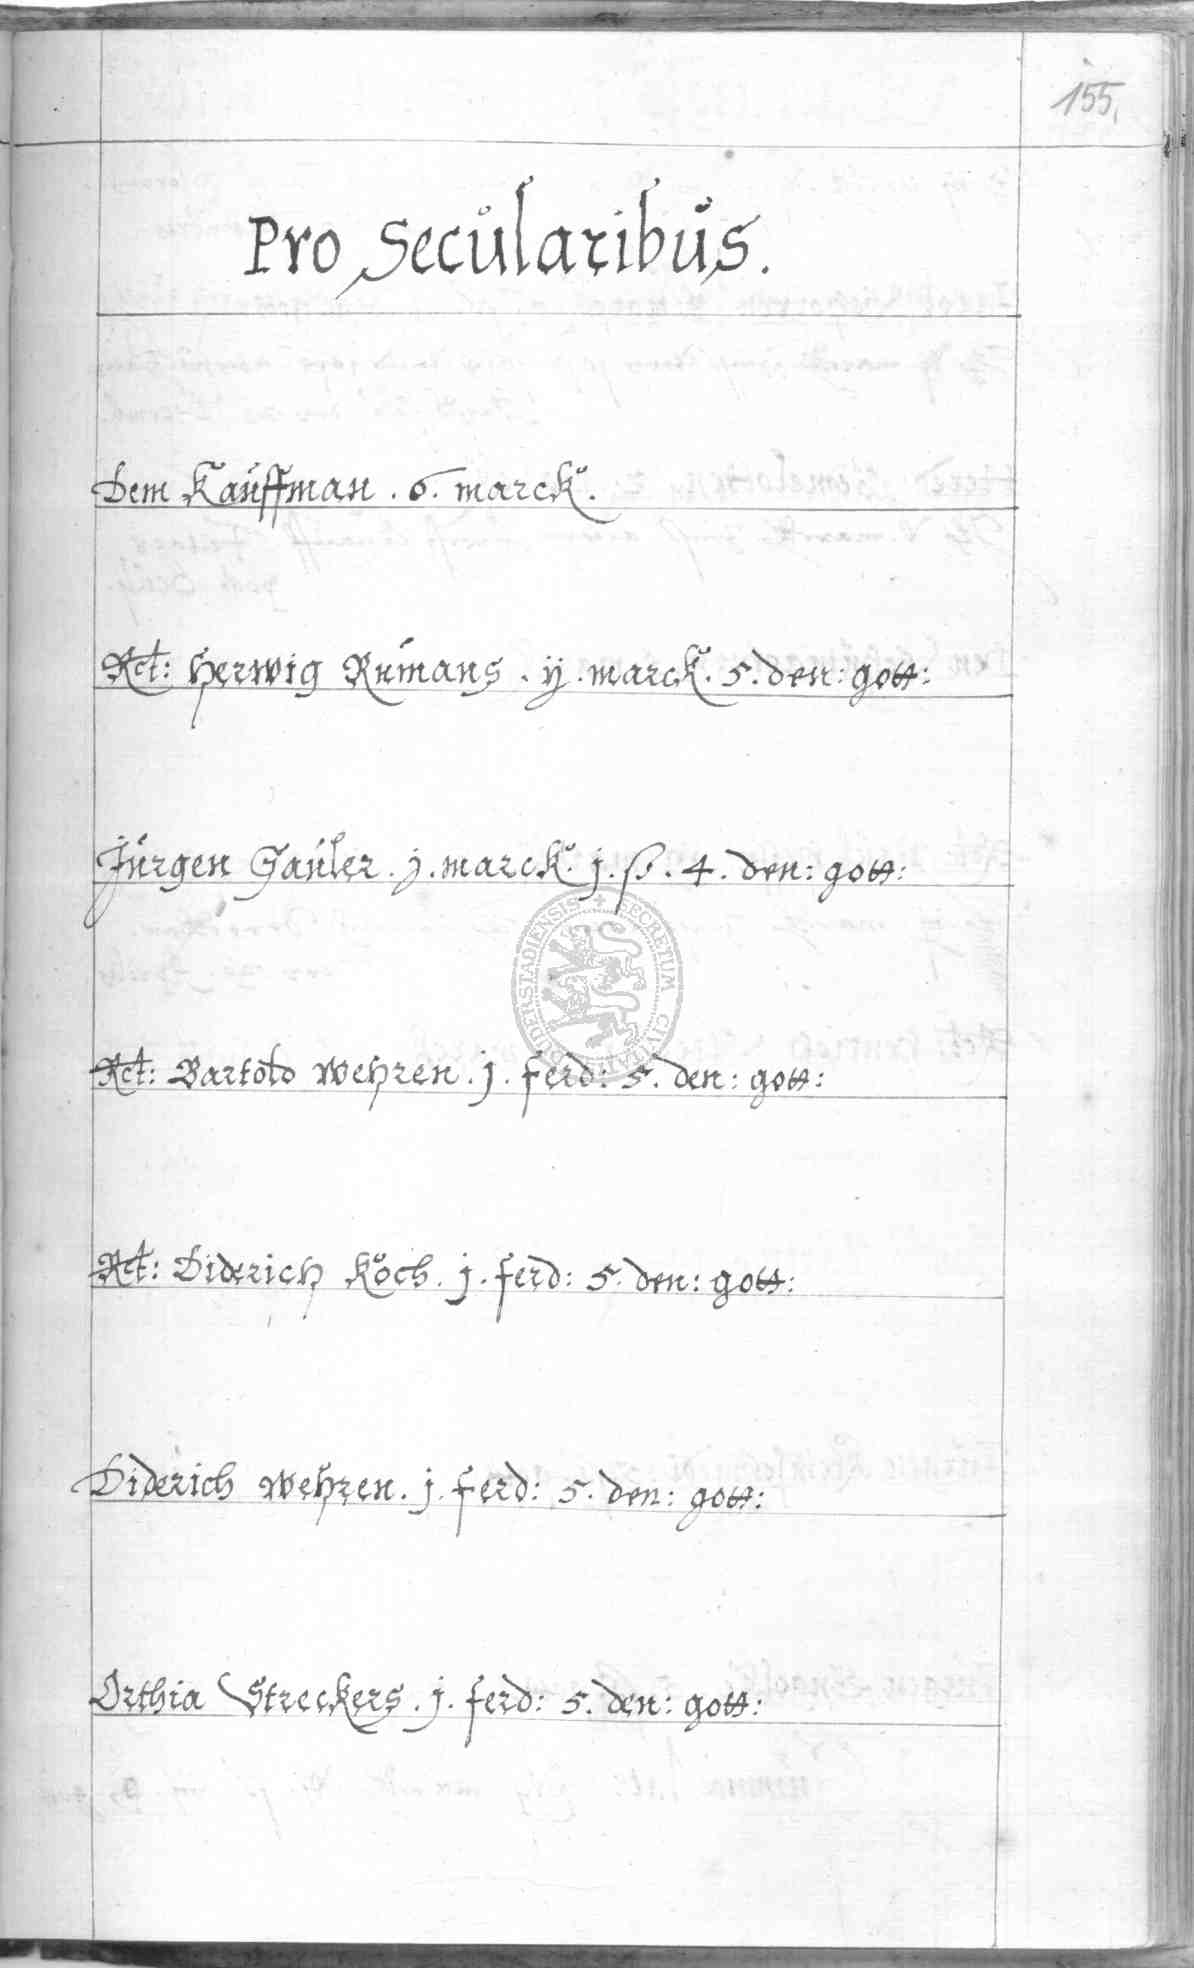 155.
Pro Secularibus.
Dem Kauffman . 6. marck.
Rct: Herwig Rumans . ij . marck. 5. den: gott:
Jürgen Gauler . j . marck. j. ß. 4. den: gott:
SECRETUM CIVITATIS DUDERSTADIENSIS
Rct: Bartold Wehren . j . ferd: 5. den: gott:
Rct: Diderich Koch . j . ferd: 5. den: gott:
Diderich Wehren . j . ferd: 5. den: gott:
Orthia Streckers . j . ferd: 5. den: gott: